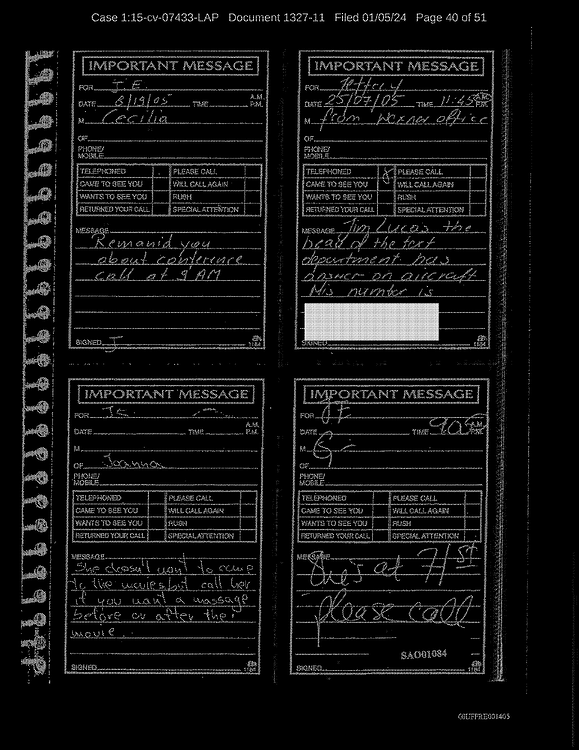 Case 1:15-cv-07433-LAP Document 1327-11 Filed 01/05/24 Page 40 of 51
IMPORTANT MESSAGE
FOR J.E.
DATE 8/19/05 TIME A.M. P.M.
M Cecilia
OF
PHONE/
MOBILE
TELEPHONED PLEASE CALL
CAME TO SEE YOU WILL CALL AGAIN
WANTS TO SEE YOU RUSH
RETURNED YOUR CALL SPECIAL ATTENTION
MESSAGE
Remanid you
about conference
call at 9 AM
SIGNED J 1184
IMPORTANT MESSAGE
FOR Jeffrey
DATE 25/07/05 TIME 11:45 A.M. P.M.
M from Wexner office
OF
PHONE/
MOBILE
TELEPHONED PLEASE CALL
CAME TO SEE YOU WILL CALL AGAIN
WANTS TO SEE YOU RUSH
RETURNED YOUR CALL SPECIAL ATTENTION
MESSAGE Jim Lucas the
head of the
department has
answer on aircraft
His number is
SIGNED 1184
IMPORTANT MESSAGE
FOR JE
DATE TIME A.M. P.M.
M
OF Joanna
PHONE/
MOBILE
TELEPHONED PLEASE CALL
CAME TO SEE YOU WILL CALL AGAIN
WANTS TO SEE YOU RUSH
RETURNED YOUR CALL SPECIAL ATTENTION
MESSAGE
She doesn't want to come
to the movies, but call her
if you want a massage
before or after the
movie.
SIGNED 1184
IMPORTANT MESSAGE
FOR JE
DATE TIME 905 A.M. P.M.
M G-
OF
PHONE/
MOBILE
TELEPHONED PLEASE CALL
CAME TO SEE YOU WILL CALL AGAIN
WANTS TO SEE YOU RUSH
RETURNED YOUR CALL SPECIAL ATTENTION
MESSAGE
She's at 71st
please call
SAO01084
SIGNED 1184
GIUFFRE001405